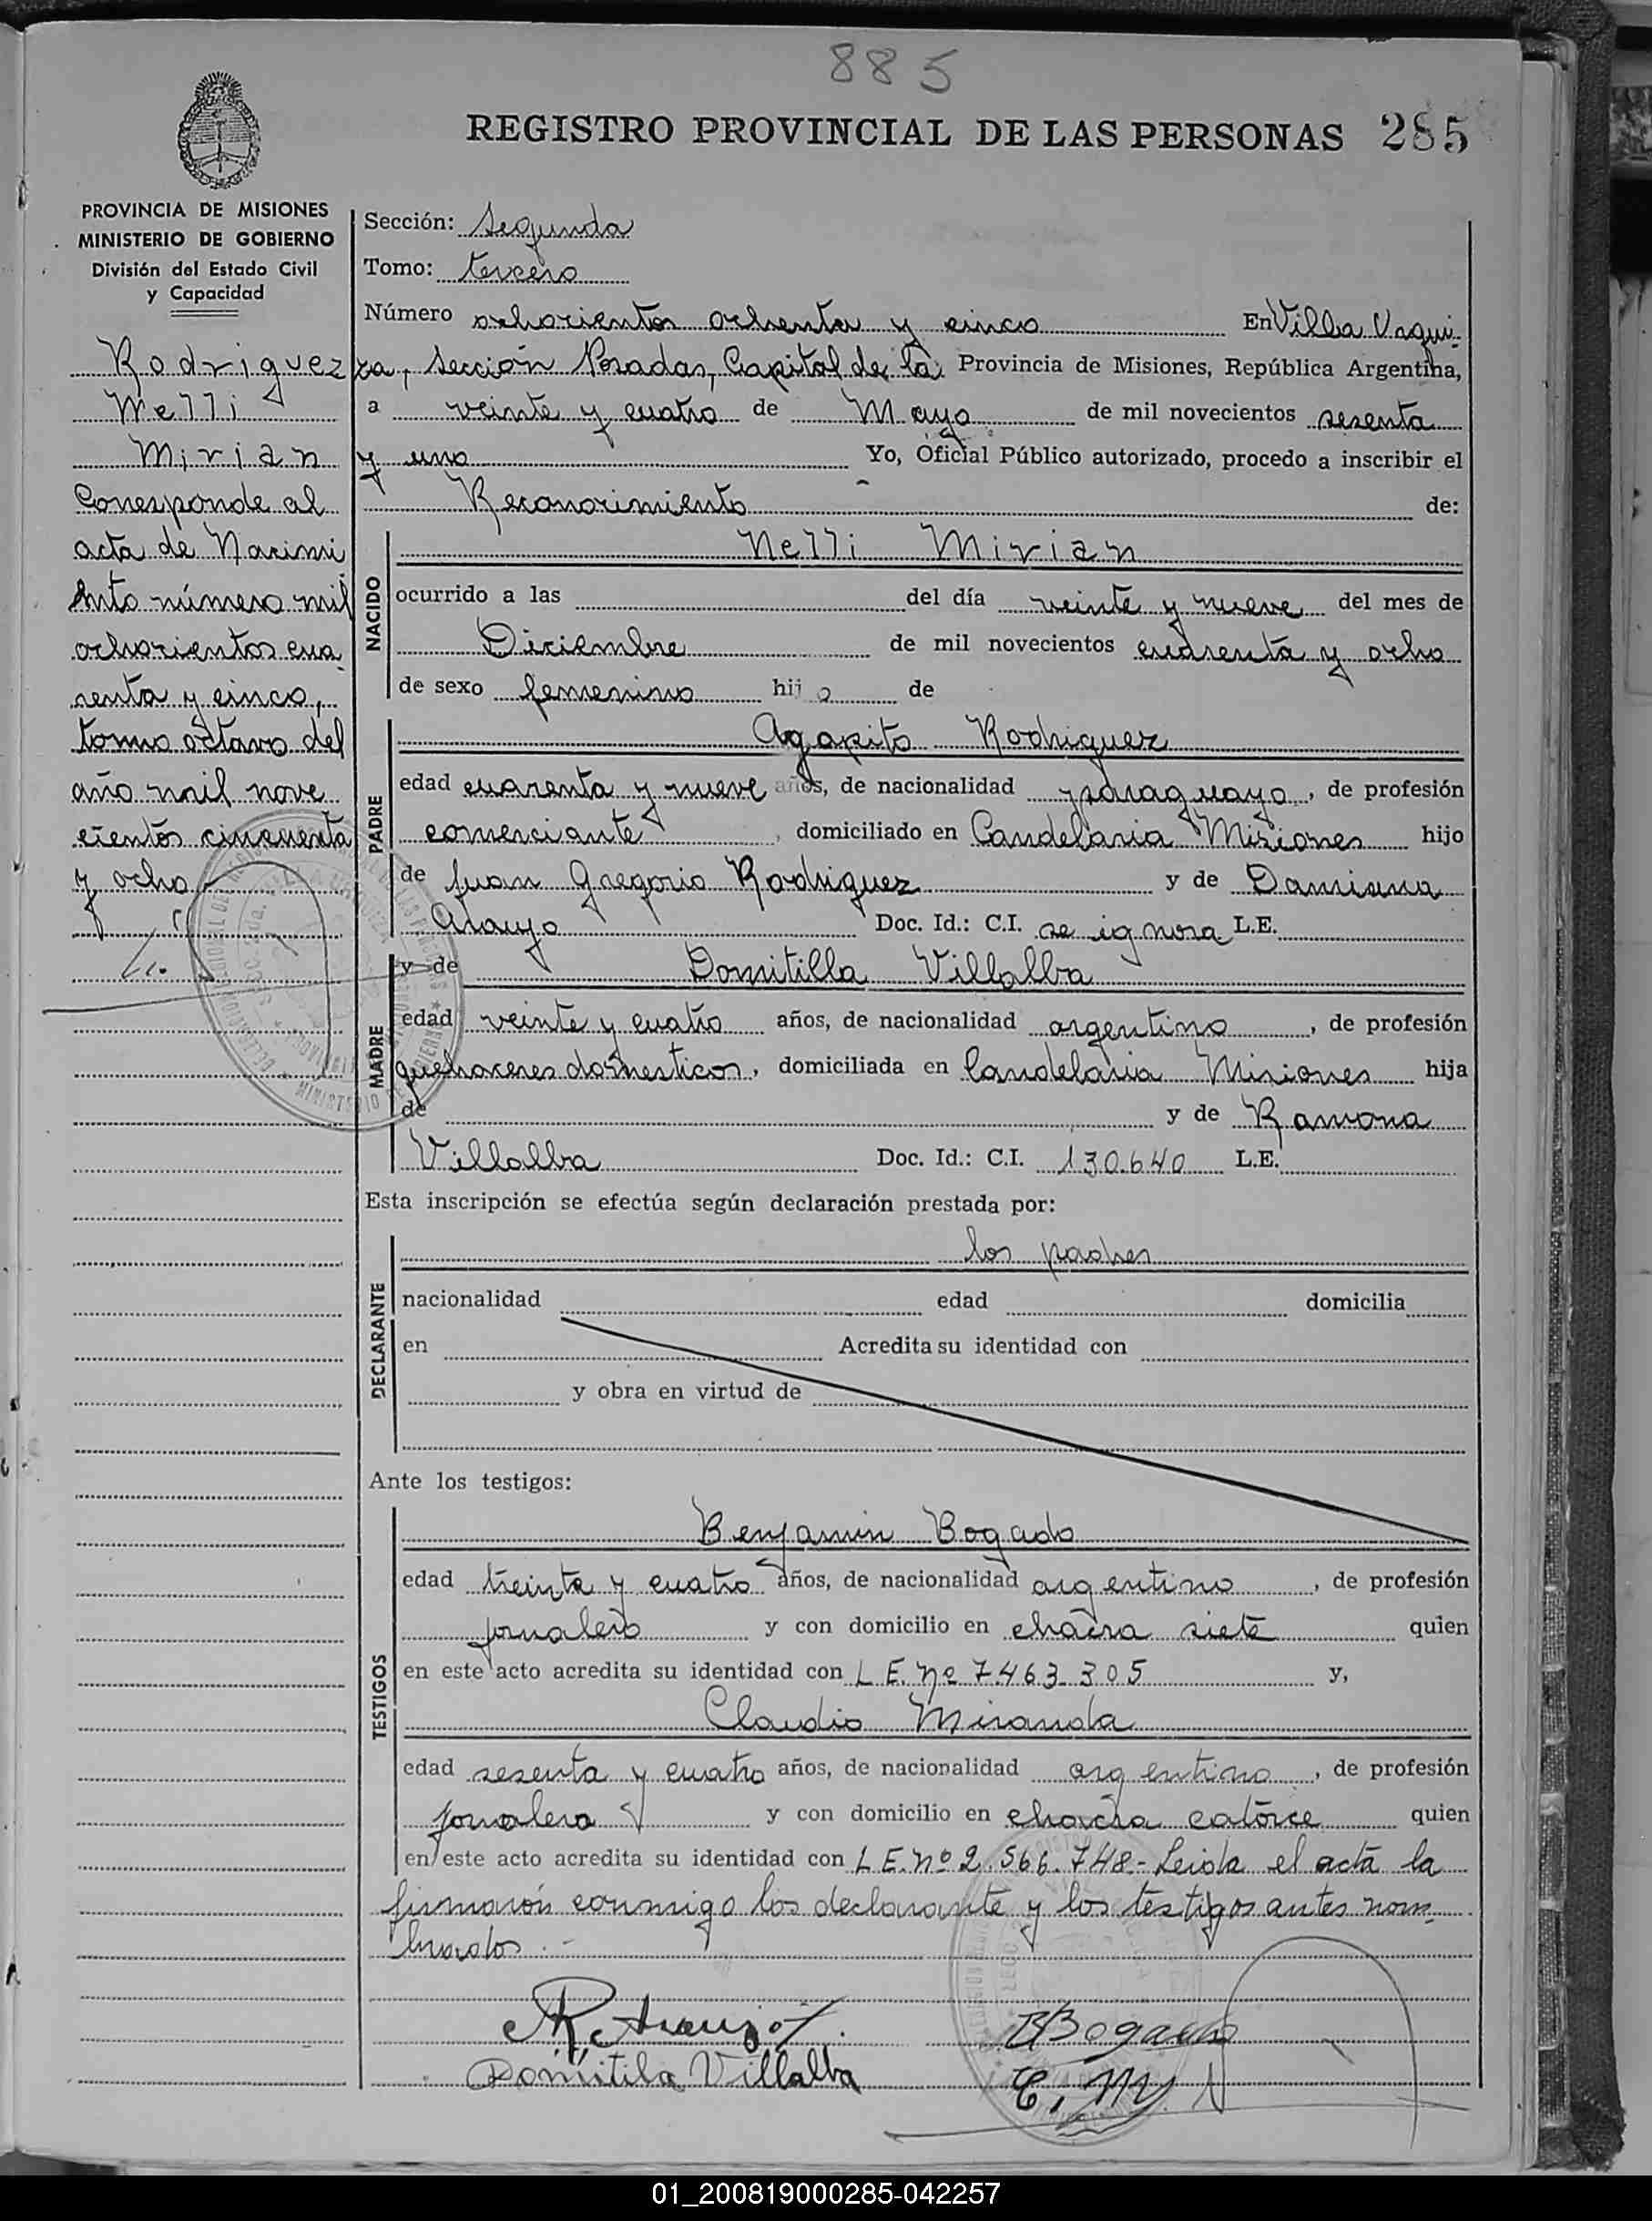 885
REGISTRO PROVINCIAL DE LAS PERSONAS 285
PROVINCIA DE MISIONES
MINISTERIO DE GOBIERNO
División del Estado Civil
y Capacidad
Rodriguez
Nelli
Mirian
Corresponde al
acta de Nacimi
ento número mil
ochocientos cua
renta y cinco,
tomo octavo del
año mil nove
cientos cincuenta
y ocho
Sección: Segunda
Tomo: tercero
Número ochocientos ochenta y cinco En Villa Urqui-
za, Sección Posadas, Capital de la Provincia de Misiones, República Argentina,
a veinte y cuatro de Mayo de mil novecientos sesenta
y uno Yo, Oficial Público autorizado, procedo a inscribir el
Reconocimiento de:
NACIDO
Nelli Mirian
ocurrido a las del día veinte y nueve del mes de
Diciembre de mil novecientos cuarenta y ocho
de sexo femenino hij a de
PADRE
Agapito Rodriguez
edad cuarenta y nueve años, de nacionalidad paraguayo, de profesión
comerciante, domiciliado en Candelaria Misiones hijo
de Juan Gregorio Rodriguez y de Damiana
Araujo Doc. Id.: C.I. se ignora L.E.
MADRE
y de Domitilla Villalba
edad veinte y cuatro años, de nacionalidad argentina, de profesión
quehaceres domesticos, domiciliada en Candelaria Misiones hija
de y de Ramona
Villalba Doc. Id.: C.I. 130.640 L.E.
Esta inscripción se efectúa según declaración prestada por:
DECLARANTE
los padres
nacionalidad edad domicilia
en Acredita su identidad con
y obra en virtud de
Ante los testigos:
TESTIGOS
Benjamin Bogado
edad treinta y cuatro años, de nacionalidad argentino, de profesión
jornalero y con domicilio en chacra siete quien
en este acto acredita su identidad con L.E. Nº 7.463.305 y,
Claudio Miranda
edad sesenta y cuatro años, de nacionalidad argentino, de profesión
jornalero y con domicilio en chacra catorce quien
en este acto acredita su identidad con L.E. Nº 2.566.748.- Leida el acta la
firmarón conmigo los declarante y los testigos antes nom-
brados.-
Domitila Villalba
BBogado
C. M
01_200819000285-042257